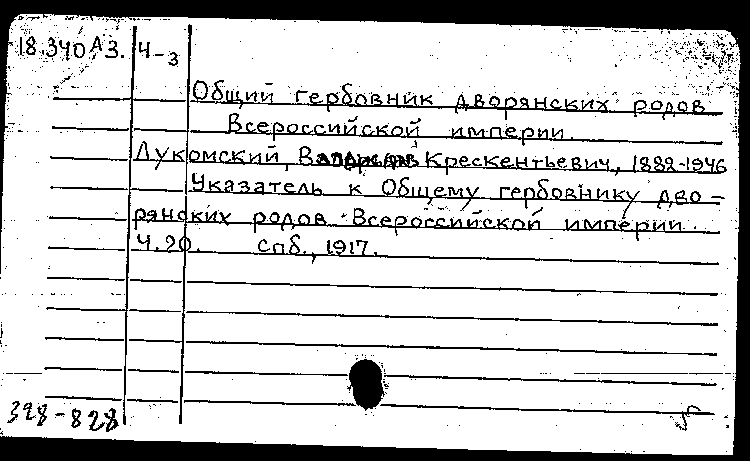 18.340 А3. Ч-3
Общий гербовник дворянских родов
Всероссийской империи.
Лукомский, Крескентьевич, 1882-1946
Указатель к Общему гербовнику дво-
рянских родов Всероссийской империи.
Ч.20. Спб., 1917.
328-828